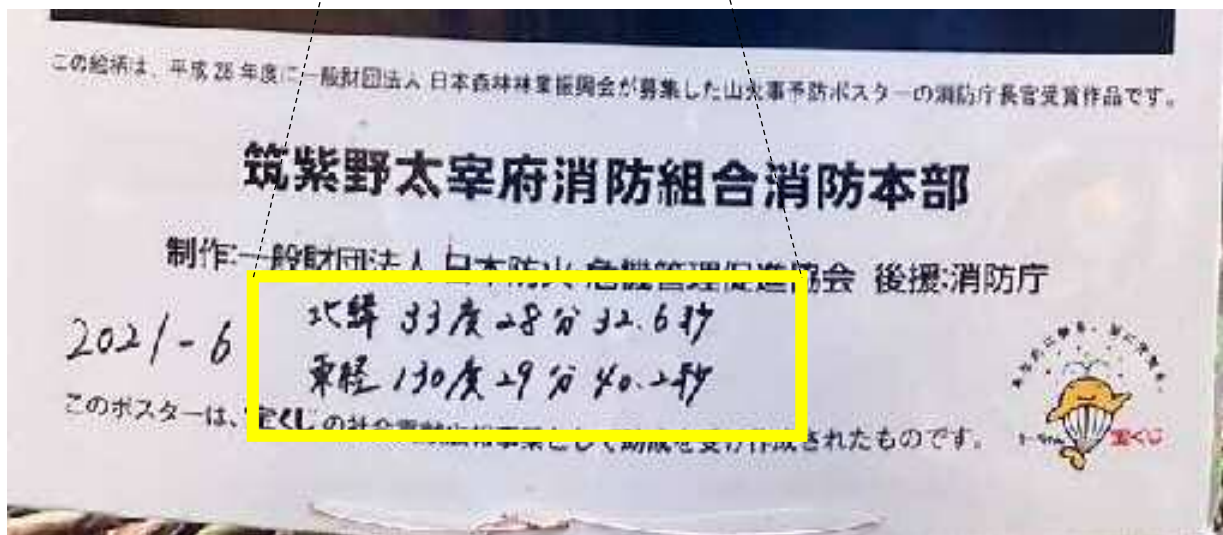 この絵柄は、平成28年度に一般財団法人 日本森林林業振興会が募集した山火事予防ポスターの消防庁長官受賞作品です。
筑紫野太宰府消防組合消防本部
制作:一般財団法人 日本防火・危機管理促進協会 後援:消防庁
2021-6
北緯 33度28分32.6秒
東経 130度29分40.2秒
このポスターは、宝くじの社会貢献広報事業として助成を受け作成されたものです。
宝くじ